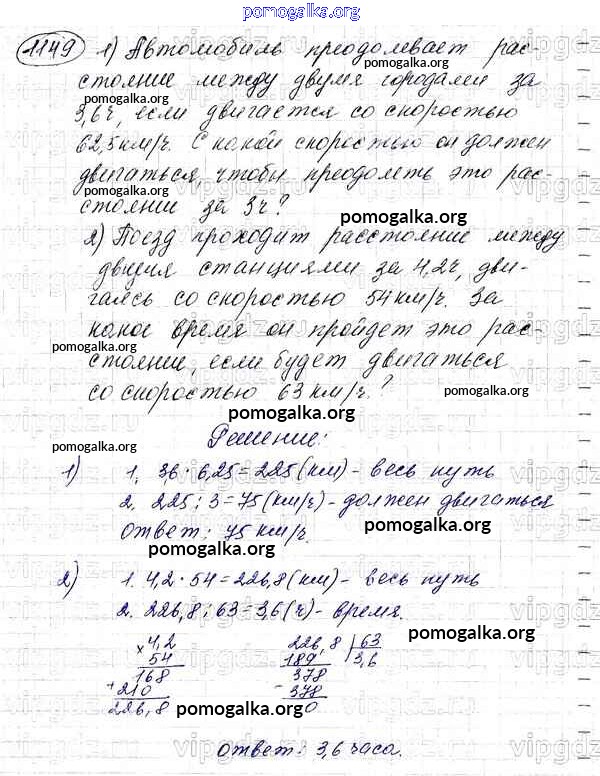 pomogalka.org
1149 1) Автомобиль преодолевает рас-
стояние между двумя городами за
3,6ч, если двигается со скоростью
pomogalka.org
62,5км/ч. С какой скоростью он должен
двигаться, чтобы преодолеть это рас-
pomogalka.org
стояние за 3ч?
pomogalka.org
2) Поезд проходит расстояние между
двумя станциями за 4,2ч, дви-
гаясь со скоростью 54км/ч. За
какое время он пройдет это рас-
pomogalka.org
стояние, если будет двигаться
со скоростью 63 км/ч?
pomogalka.org
pomogalka.org
Решение:
pomogalka.org
1) 1. 36 · 6,25 = 225(км) - весь путь
2. 225 : 3 = 75(км/ч) - должен двигаться
Ответ: 75 км/ч.
pomogalka.org
pomogalka.org
2) 1. 4,2 · 54 = 226,8(км) - весь путь
2. 226,8 : 63 = 3,6(ч) - время.
pomogalka.org
× 4,2 226,8 63
54 189 3,6
168 378
+ 210 - 378
226,8 0
pomogalka.org
pomogalka.org
Ответ: 3,6 часа.